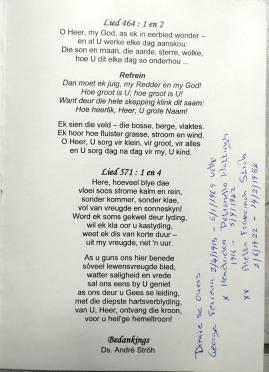 Lied 464 : 1 en 2
O Heer, my God, as ek in eerbied wonder –
en al U werke elke dag aanskou:
Die son en maan, die aarde, sterre, wolke,
hoe U dit elke dag so onderhou ...
Refrein
Dan moet ek juig, my Redder en my God!
Hoe groot is U; hoe groot is U!
Want deur die hele skepping klink dit saam:
Hoe heerlik, Heer, U grote Naam!
Ek sien die veld – die bosse, berge, vlaktes.
Ek hoor hoe fluister grasse, stroom en wind.
O Heer, U sorg vir klein, vir groot, vir alles
en U sorg dag na dag vir my, U kind.
Lied 571 : 1 en 4
Here, hoeveel blye dae
vloei soos strome kalm en rein,
sonder kommer, sonder klae,
vol van vreugde en sonneskyn!
Word ek soms gekwel deur lyding,
wil ek kla oor u kastyding,
weet ek dis van korte duur –
uit my vreugde, net 'n uur.
As u guns ons hier benede
sóveel lewensvreugde bied,
watter saligheid en vrede
sal ons eens by U geniet
as ons deur u Gees se leiding,
met die diepste hartsverblyding,
van U, Heer, ontvang die kroon,
voor u heil'ge hemeltroon!
Bedankings
Ds. André Ströh
se ouers
George 2/4/1913 -
x Hendrieka
1916 - 5/9/1962
xx
2/6/1922 - 14/2/1986